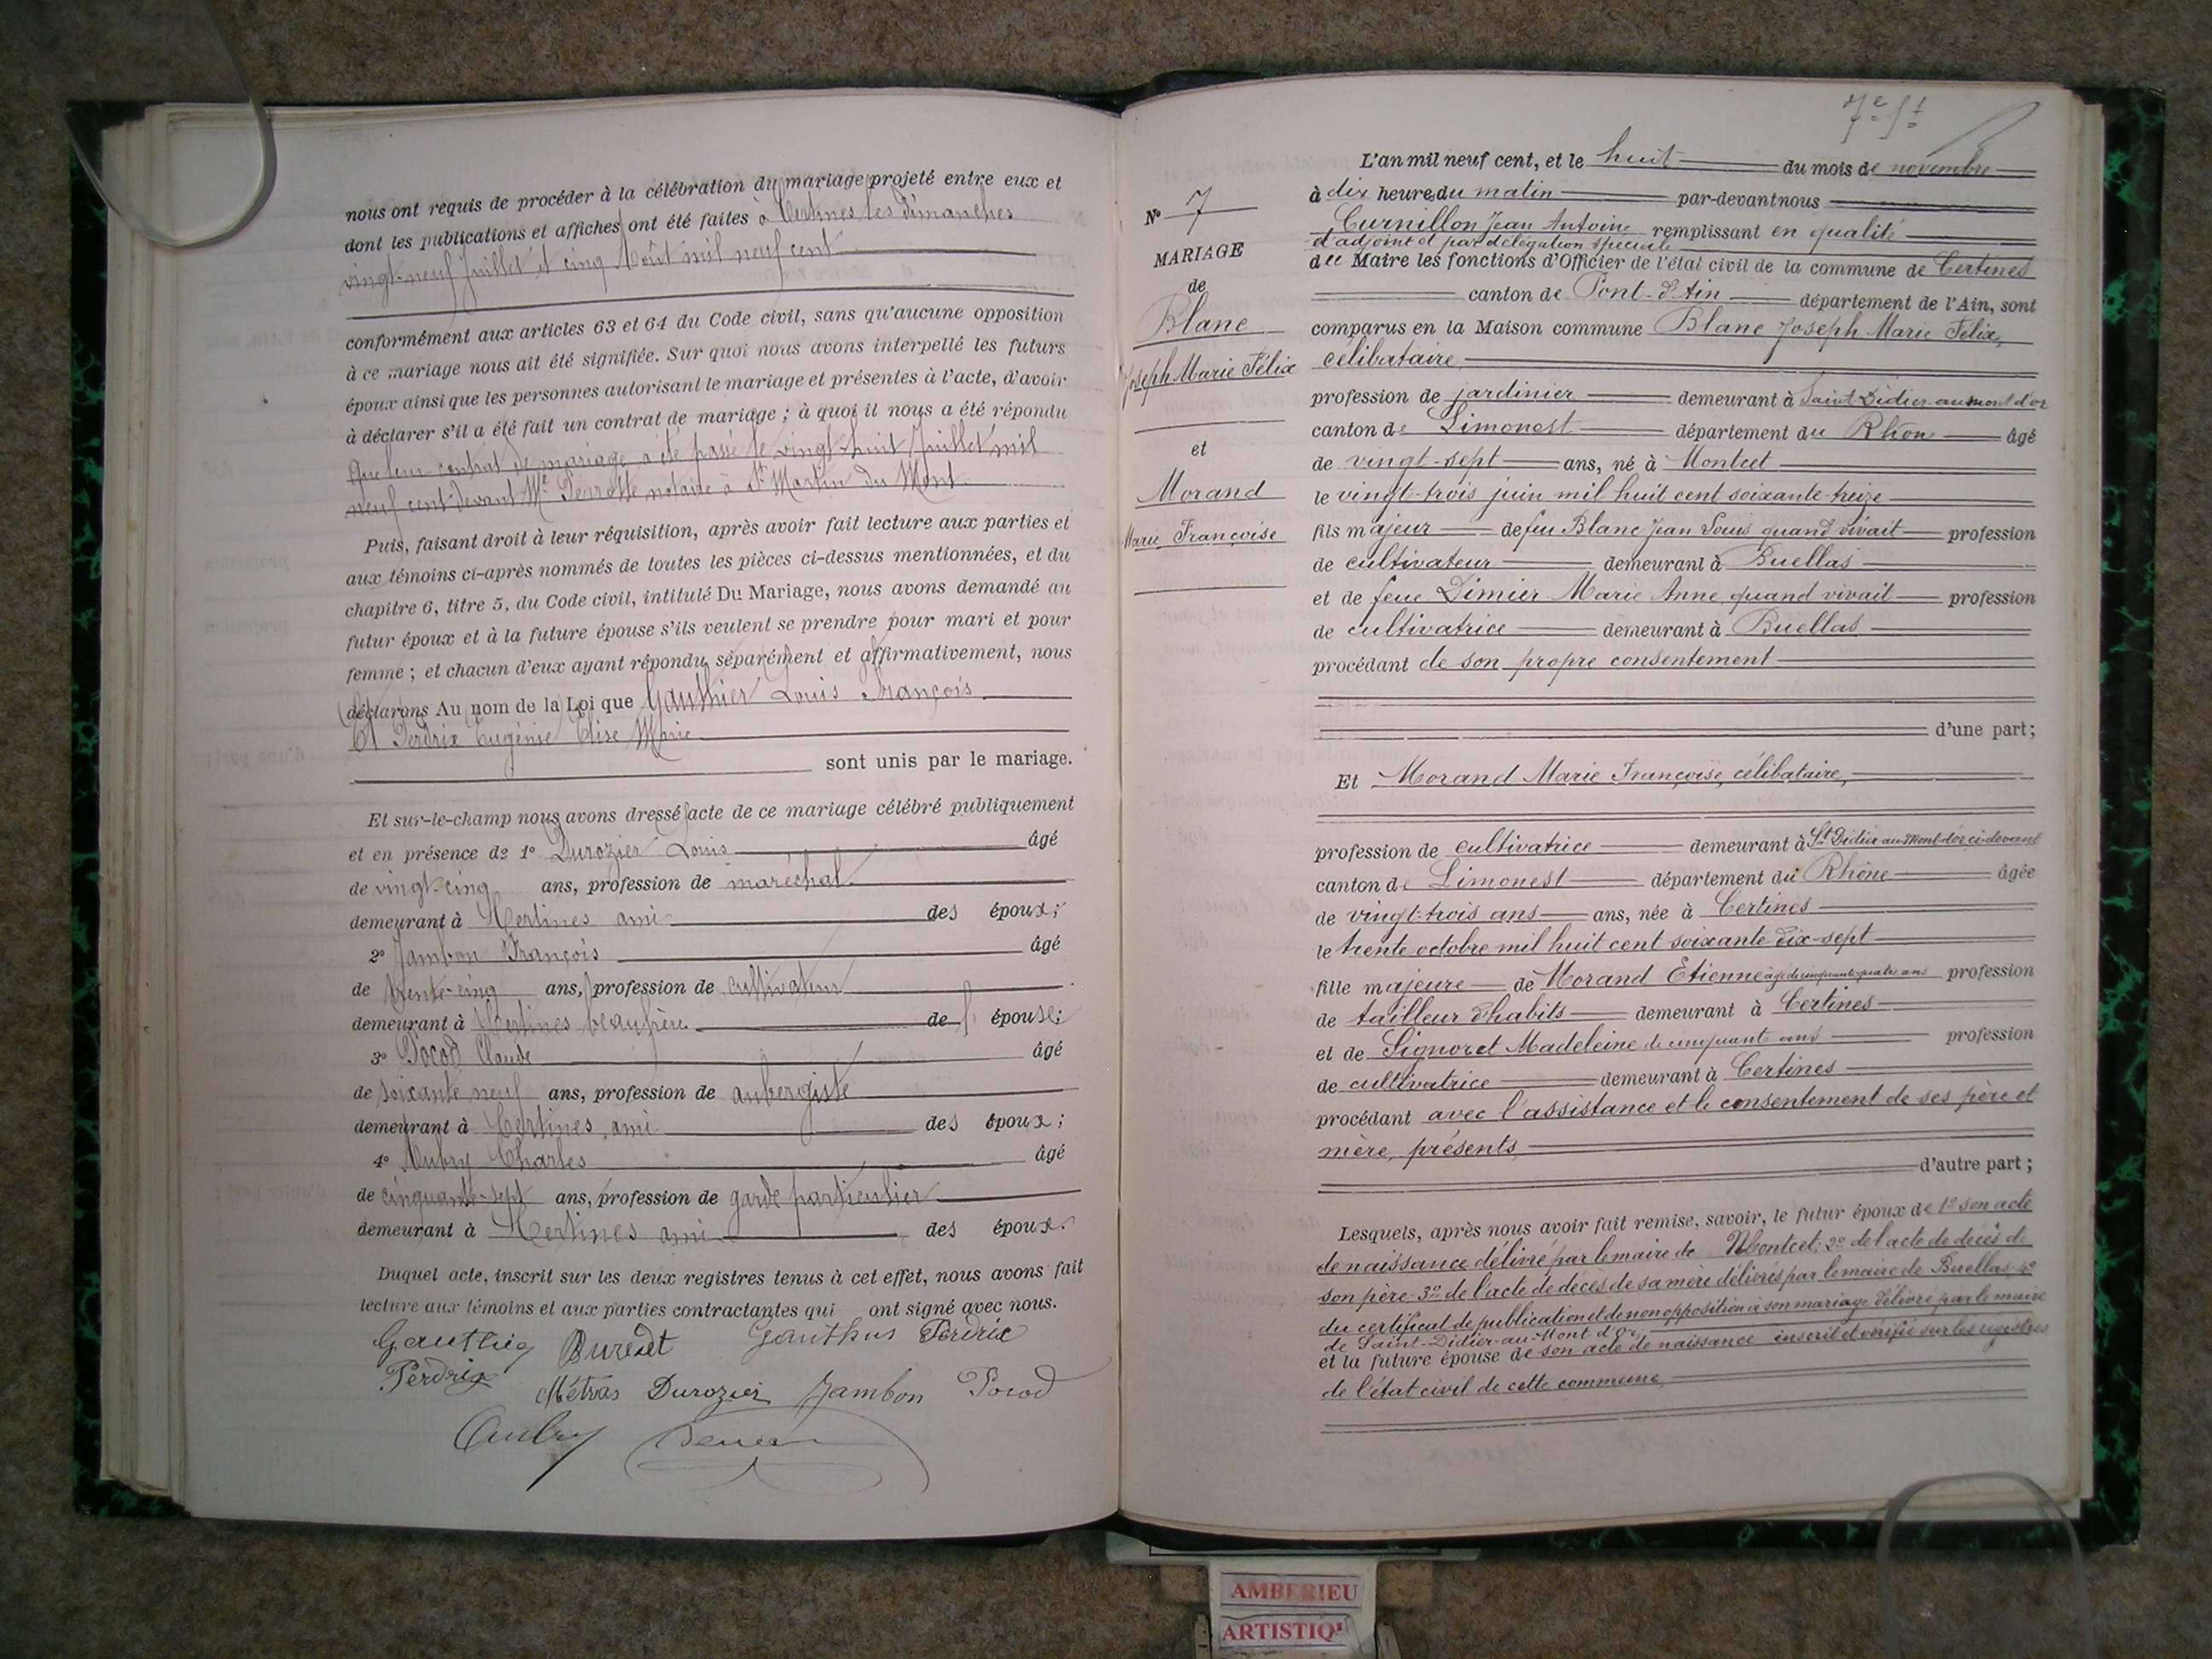 nous ont requis de procéder à la célébration du mariage projeté entre eux et
dont les publications et affiches ont été faites à Certines les dimanches
vingt-neuf Juillet et cinq Août mil neuf cent
conformément aux articles 63 et 64 du Code civil, sans qu'aucune opposition
à ce mariage nous ait été signifiée. Sur quoi nous avons interpellé les futurs
époux ainsi que les personnes autorisant le mariage et présentes à l'acte, d'avoir
à déclarer s'il a été fait un contrat de mariage ; à quoi il nous a été répondu
que leur contrat de mariage a été passé le vingt-huit Juillet mil
neuf cent devant Me Perrotte notaire à St Martin du Mont
Puis, faisant droit à leur réquisition, après avoir fait lecture aux parties et
aux témoins ci-après nommés de toutes les pièces ci-dessus mentionnées, et du
chapitre 6, titre 5, du Code civil, intitulé Du Mariage, nous avons demandé au
futur époux et à la future épouse s'ils veulent se prendre pour mari et pour
femme ; et chacun d'eux ayant répondu séparément et affirmativement, nous
déclarons Au nom de la Loi que Gauthier Louis François
Et Perdrix Eugénie Elise Marie
sont unis par le mariage.
Et sur-le-champ nous avons dressé acte de ce mariage célébré publiquement
et en présence de 1° Durozier Louis âgé
de vingt-cinq ans, profession de maréchal
demeurant à Certines ami des époux;
2° Jambon François âgé
de trente-cinq ans, profession de cultivateur
demeurant à Certines beau frère de l' épouse;
3° Pocod Claude âgé
de soixante neuf ans, profession de aubergiste
demeurant à Certines ami des époux;
4° Aubry Charles âgé
de cinquante-sept ans, profession de garde particulier
demeurant à Certines ami des époux.
Duquel acte, inscrit sur les deux registres tenus à cet effet, nous avons fait
lecture aux témoins et aux parties contractantes qui ont signé avec nous.
Gauthier Buredet Gauthier Perdrix
Perdrix Métras Durozier Jambon Pocod
Aubry
7e
L'an mil neuf cent, et le huit du mois de novembre
à dix heures du matin par-devant nous
Curnillon Jean Antoine remplissant en qualité
d'adjoint et par délégation spéciale
du Maire les fonctions d'Officier de l'état civil de la commune de Certines
canton de Pont-d'Ain département de l'Ain, sont
comparus en la Maison commune Blanc Joseph Marie Félix,
célibataire,
profession de jardinier demeurant à Saint Didier-au mont d'or
canton de Limonest département du Rhône âgé
de vingt-sept ans, né à Montcet
le vingt-trois juin mil huit cent soixante-treize
fils majeur de feu Blanc Jean Louis quand vivait profession
de cultivateur demeurant à Buellas
et de feue Dimier Marie Anne quand vivait profession
de cultivatrice demeurant à Buellas
procédant de son propre consentement
d'une part;
N° 7
MARIAGE
de
Blanc
Joseph Marie Félix
et
Morand
Marie Françoise
Et Morand Marie Françoise, célibataire,
profession de cultivatrice demeurant à St Didier au Mont d'or ci-devant
canton de Limonest département du Rhône âgée
de vingt-trois ans ans, née à Certines
le trente octobre mil huit cent soixante dix-sept
fille majeure de Morand Étienne âgé de cinquante quatre ans profession
de tailleur d'habits demeurant à Certines
et de Signoret Madeleine de cinquante ans profession
de cultivatrice demeurant à Certines
procédant avec l'assistance et le consentement de ses père et
mère, présents
d'autre part ;
Lesquels, après nous avoir fait remise, savoir, le futur époux de 1° son acte
de naissance délivré par le maire de Montcet; 2° de l'acte de décès de
son père 3° de l'acte de décès de sa mère délivrés par le maire de Buellas, 4°
du certificat de publication et de non opposition à son mariage délivré par le maire
de Saint-Didier-au-Mont d'or,
et la future épouse de son acte de naissance inscrit et vérifié sur les registres
de l'état civil de cette commune,
AMBERIEU
ARTISTIQ